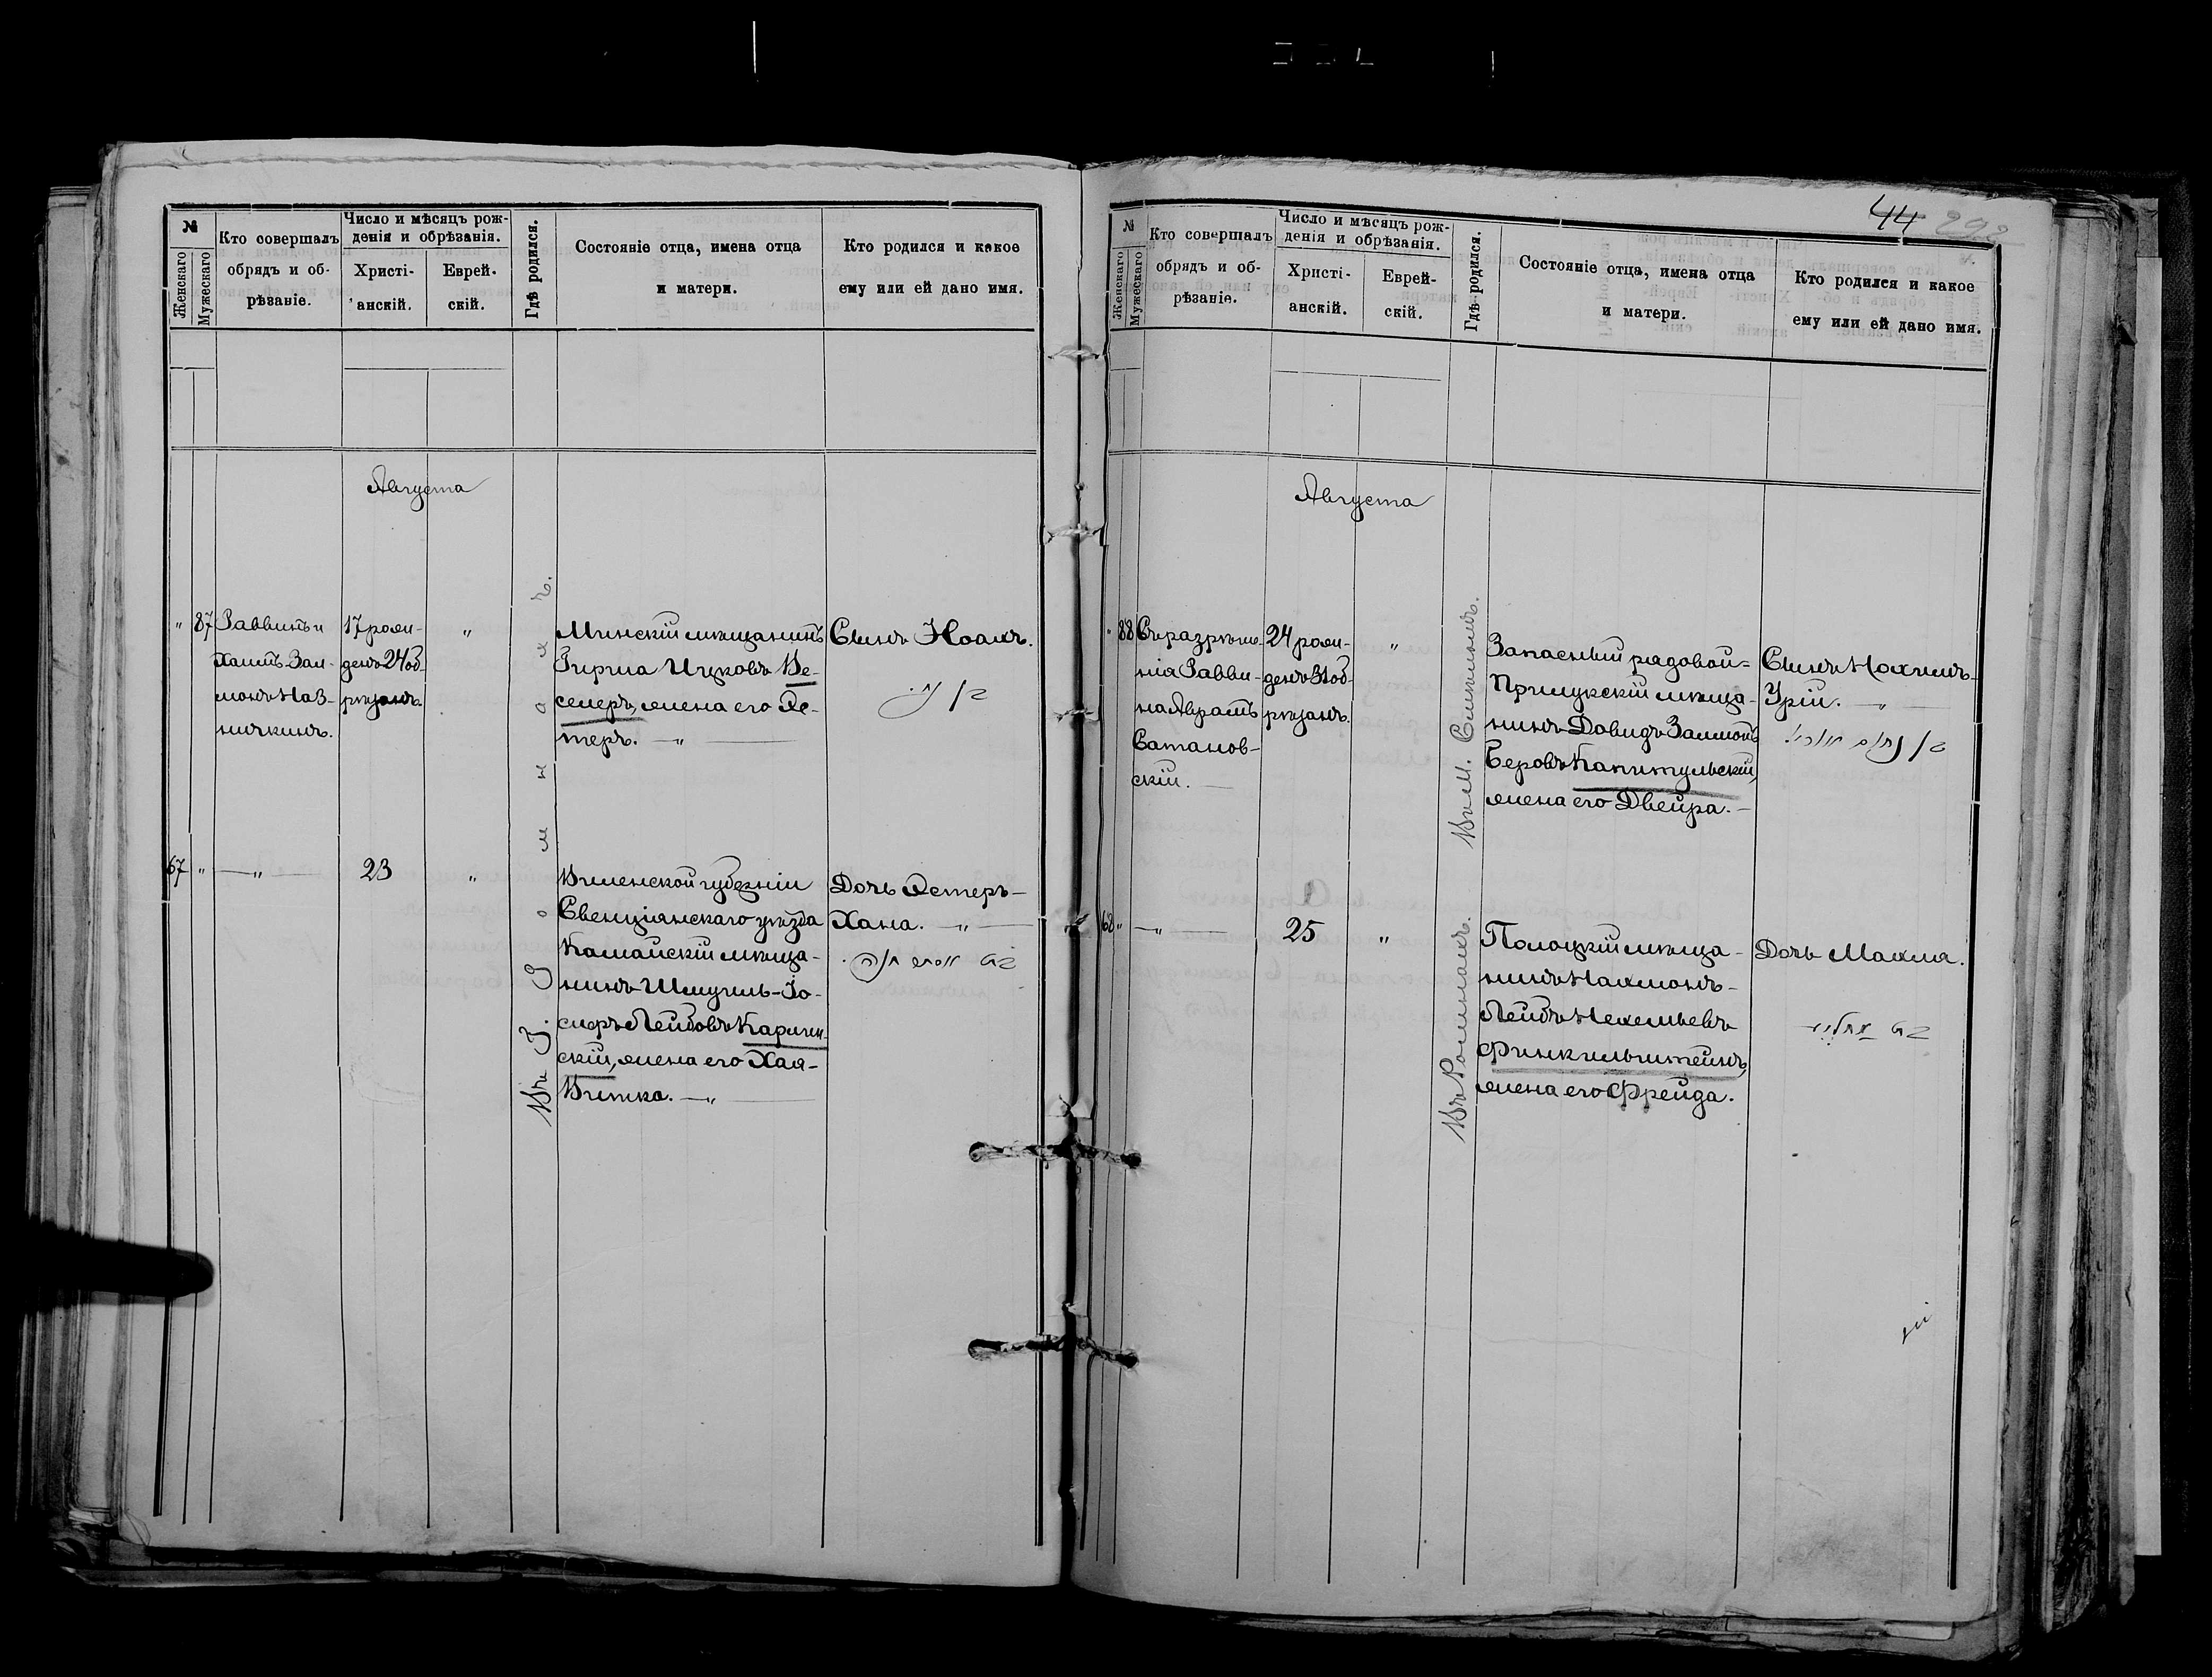 №
Женскаго
Мужескаго
Кто совершалъ
обрядъ и об-
рѣзаніе.
Число и мѣсяцъ рож-
денія и обрѣзанія.
Христі-
анскій.
Еврей-
скій.
Гдѣ родился.
Состояніе отца, имена отца
и матери.
Кто родился и какое
ему или ей дано имя.
Августа
" 87
Раввинъ и
Хаимъ Зал-
монъ Наз-
ничкинъ.
17 рож-
денъ 24 об-
рѣзанъ.
"
Минскій мѣщанинъ
Гирша Ицковъ Ве-
селеръ, жена его Эс-
теръ. — " —
Сынъ Ноахъ.
בן נח
67 "
— " —
23
"
Виленской губерніи
Свенцянскаго уѣзда
Камайскій мѣща-
нинъ Шмуиль-Іо-
сифъ Лейбовъ Каргин-
скій, жена его Хая-
Витка. — " —
Дочь Эстеръ-
Хана. — " —
בת אסתר חנה
Въ г. Ромнахъ.
44
№
Женскаго
Мужескаго
Кто совершалъ
обрядъ и об-
рѣзаніе.
Число и мѣсяцъ рож-
денія и обрѣзанія.
Христі-
анскій.
Еврей-
скій.
Гдѣ родился.
Состояніе отца, имена отца
и матери.
Кто родился и какое
ему или ей дано имя.
Августа
" 88
Съ разрѣше-
нія Равви-
на Аврамъ
Сатанов-
скій. —
24 рож-
денъ 31 об-
рѣзанъ.
"
Въ м. Смѣломъ.
Запасный рядовой-
Прилукскій мѣща-
нинъ Довидъ Залмонъ
Беровъ Капитульскій,
жена его Двейра. —
Сынъ Нахимъ-
Урій. — " —
בן נחום אורי
68 "
— " —
25
"
Въ Ромнахъ.
Полоцкій мѣща-
нинъ Нахмонъ-
Лейбъ Нехемьевъ
Финкильштейнъ,
жена его Фрейда.
Дочь Махля.
בת מחליא